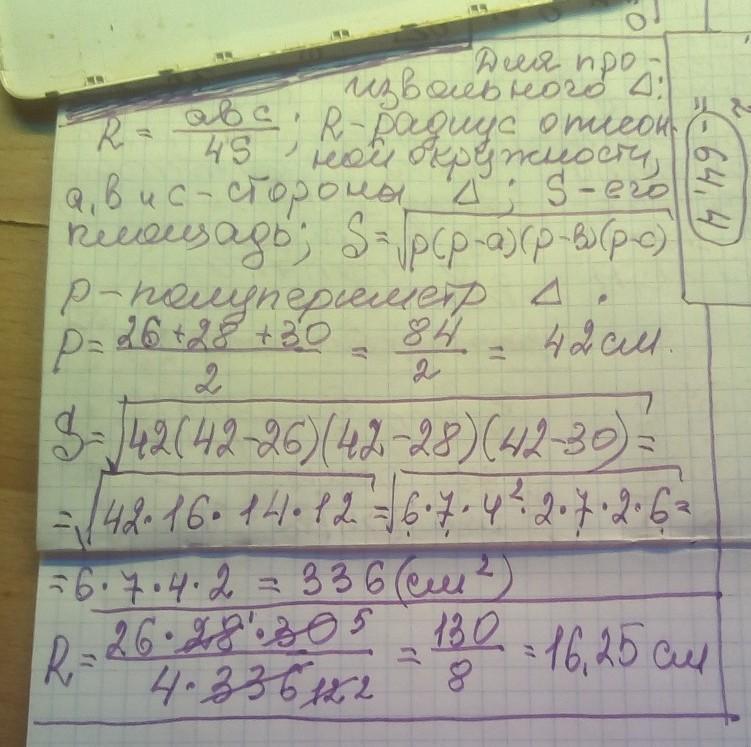 Для про-
извольного Δ:
R = aвc/4S; R-радиус описан
ной окружности,
a, в и c - стороны Δ; S - его
площадь; S=√p(p-a)(p-в)(p-c)
p - полупериметр Δ.
p = 26+28+30/2 = 84/2 = 42 см.
S=√42(42-26)(42-28)(42-30) =
=√42·16·14·12 = √6·7·4²·2·7·2·6 =
=6·7·4·2 = 336 (см²)
R = 26·28¹·30 5/4·336 12 2 = 130/8 = 16,25 см
4,49 -
=
2